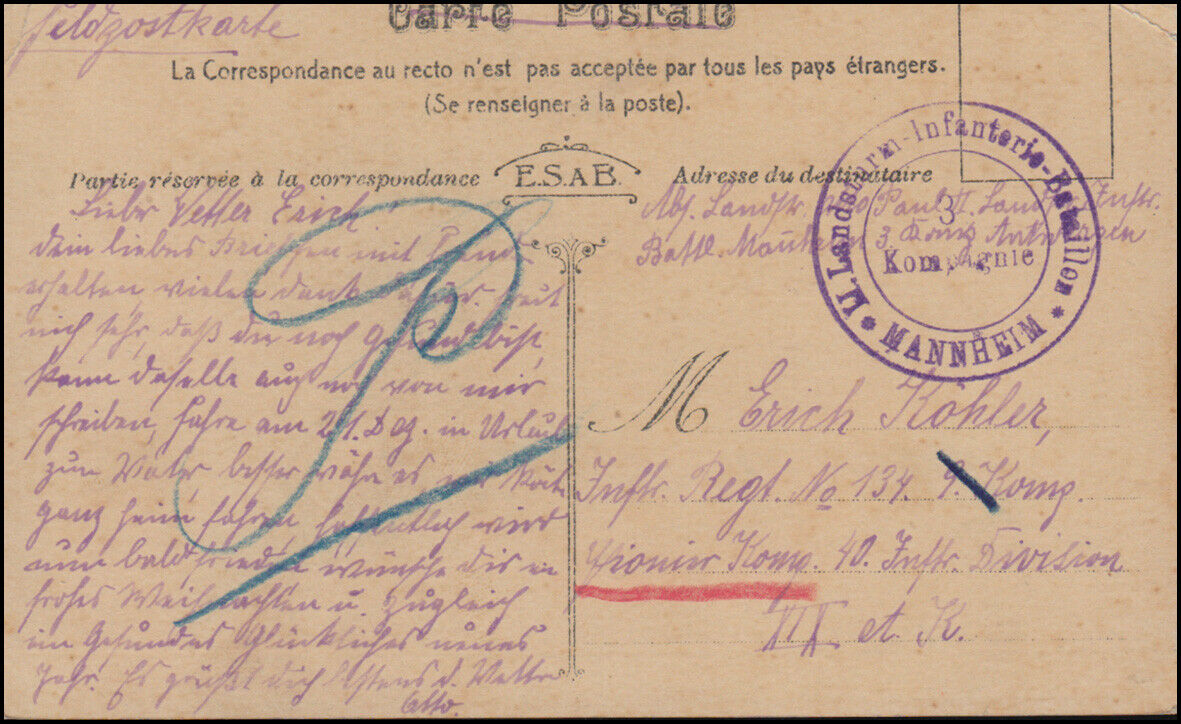 Feldpostkarte
Carte Postale
La Correspondance au recto n'est pas acceptée par tous les pays étrangers.
(Se renseigner à la poste).
Partie réservée à la correspondance
E.S.A.B.
Adresse du destinataire
Lieber Vetter Erich!
dein liebes Briefchen mit
erhalten, vielen dank dafür. freut
mich sehr, daß du noch Gesund bist,
kann daselle auch noch von mir
schreiben, fahre am 21. Dez. in Urlaub
zum Vater, besser wäre es wir
ganz heim fahren, hoffentlich wird
nun bald frieden wünsche dir ein
frohes Weihnachten u. zugleich
ein Gesundes Glückliches neues
Jahr. Es grüßt dich bestens d. Vetter
Otto.
Abs. Landstr. Otto Paul II. Landst. Inftr.
Battl. Mannheim 3. Komp. Antwerpen
II. Landsturm-Infanterie-Bataillon
* MANNHEIM *
3
Kompagnie
M Erich Köhler,
Inftr. Regt. No 134. 9. Komp.
Pionier Komp. 40. Inftr. Division
XIX et. K.